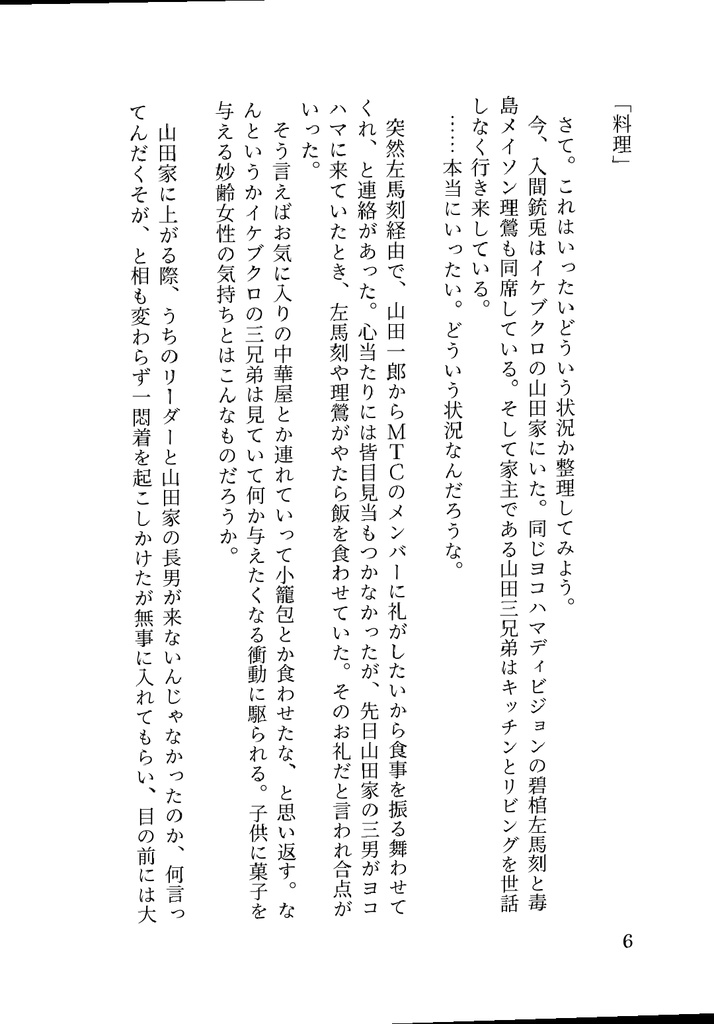 「料理」
さて。これはいったいどういう状況か整理してみよう。
今、入間銃兎はイケブクロの山田家にいた。同じヨコハマディビジョンの碧棺左馬刻と毒
島メイソン理鶯も同席している。そして家主である山田三兄弟はキッチンとリビングを世話
しなく行き来している。
……本当にいったい。どういう状況なんだろうな。
突然左馬刻経由で、山田一郎からMTCのメンバーに礼がしたいから食事を振る舞わせて
くれ、と連絡があった。心当たりには皆目見当もつかなかったが、先日山田家の三男がヨコ
ハマに来ていたとき、左馬刻や理鶯がやたら飯を食わせていた。そのお礼だと言われ合点が
いった。
そう言えばお気に入りの中華屋とか連れていって小籠包とか食わせたな、と思い返す。な
んというかイケブクロの三兄弟は見ていて何か与えたくなる衝動に駆られる。子供に菓子を
与える妙齢女性の気持ちとはこんなものだろうか。
山田家に上がる際、うちのリーダーと山田家の長男が来ないんじゃなかったのか、何言っ
てんだくそが、と相も変わらず一悶着を起こしかけたが無事に入れてもらい、目の前には大
6